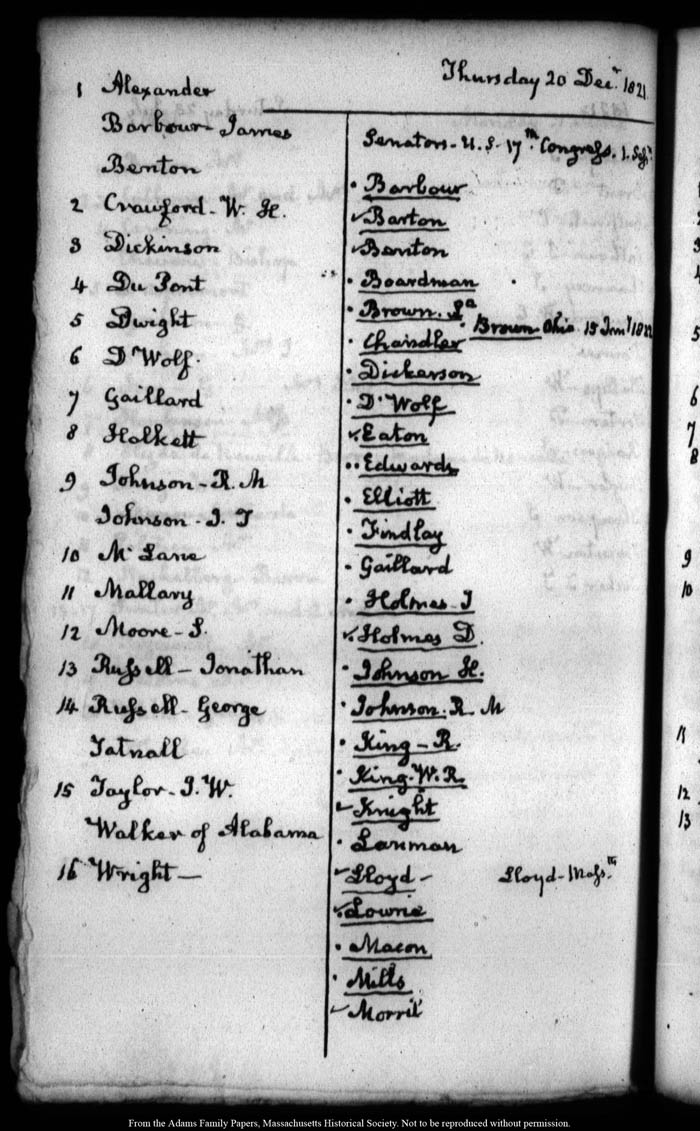 Thursday 20 Decr. 1821
1 Alexander
Barbour - James
Benton
2 Crawford - W. H.
3 Dickinson
4 Du Pont
5 Dwight
6 D'Wolf.
7 Gaillard
8 Halkett
9 Johnson - R. M
Johnson - J. T
10 McLane
11 Mallary
12 Moore - S.
13 Russell - Jonathan
14 Russell - George
Tatnall
15 Taylor - J. W.
Walker of Alabama
16 Wright —
Senators - U. S - 17th Congress. 1. Sessn.
Barbour
Barton
Benton
Boardman
Brown. La
Brown Ohio 15 Jany 1822
Chandler
Dickerson
D'Wolf
Eaton
Edwards
Elliott
Findlay
Gaillard
Holmes - J
Holmes D.
Johnson H.
Johnson. R. M
King - R.
King. W. R.
Knight
Lanman
Lloyd - Lloyd - Masstts
Lowrie
Macon
Mills
Morril
2
3
4
5
6
7
8
9
10
11
12
13
From the Adams Family Papers, Massachusetts Historical Society. Not to be reproduced without permission.